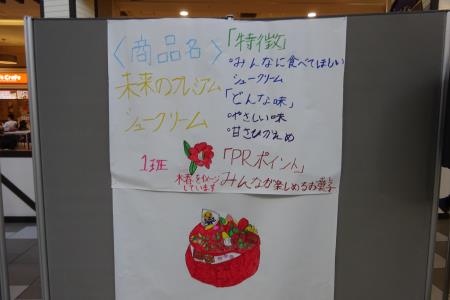 〈商品名〉
未来のプレミアム
シュークリーム
1班
椿をイメージ
しています
「特徴」
・みんなに食べてほしい
シュークリーム
「どんな味」
・やさしい味
・甘さひかえめ
「PRポイント」
みんなが楽しめるお菓子